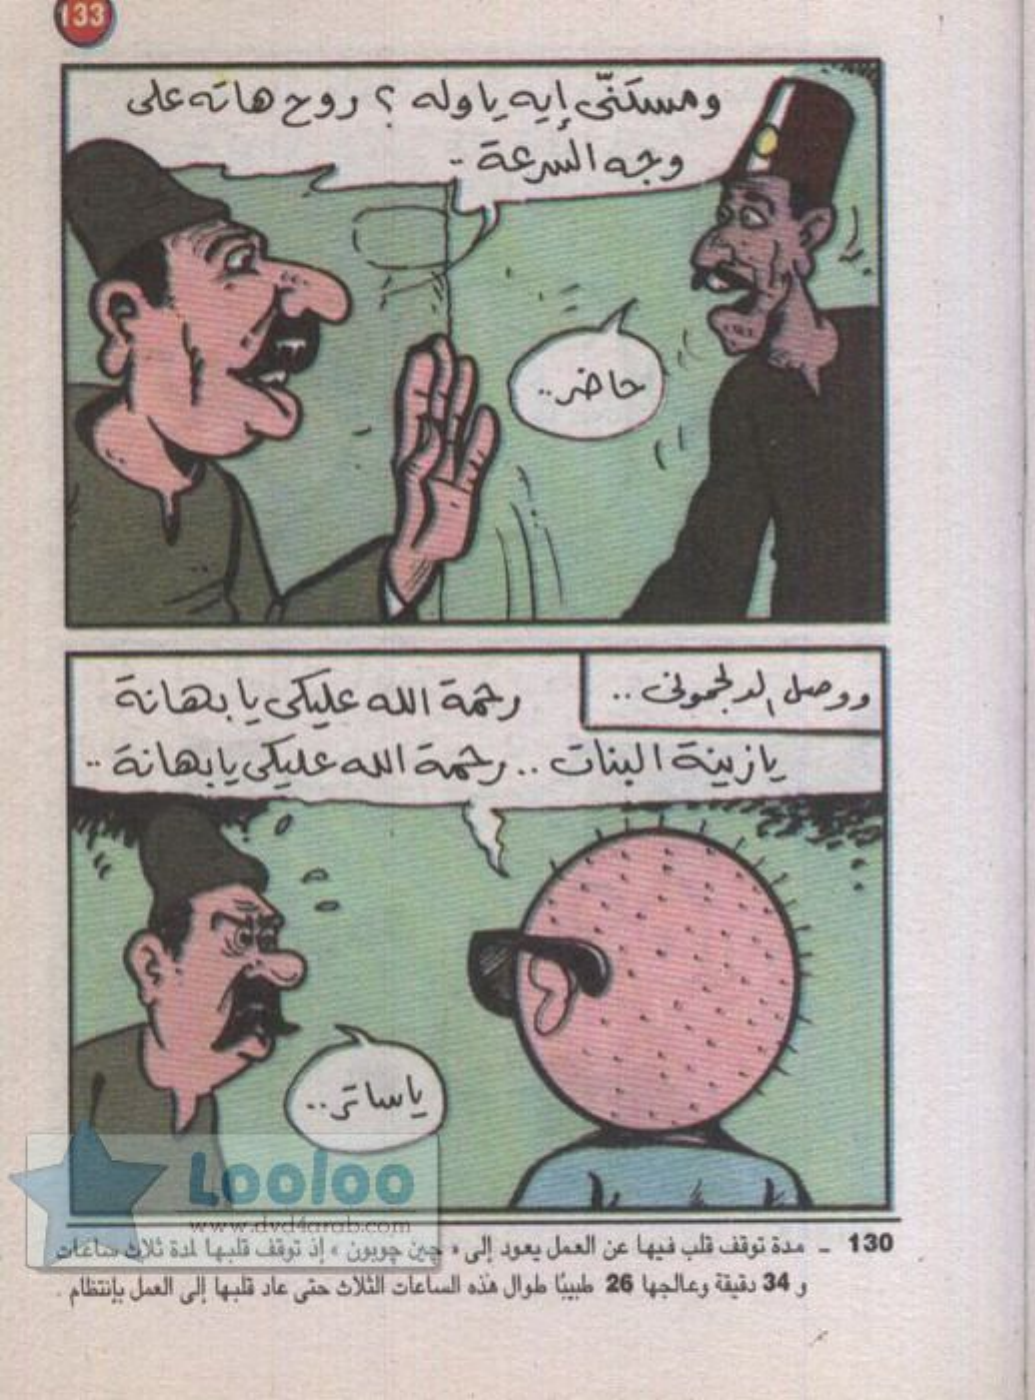 133
ومستنّى إيه ياوله ؟ روح هاته على
وجه السرعة ..
حاضر ..
ووصل الدلجمونى ..
رحمة الله عليكى يا بهانة
يازينة البنات .. رحمة الله عليكى يابهانة ..
ياساتر ..
Looloo
www.dvd4arab.com
130 ـ مدة توقف قلب فيها عن العمل يعود إلى « چين چوبون » إذ توقف قلبها لمدة ثلاث ساعات
و 34 دقيقة وعالجها 26 طبيبًا طوال هذه الساعات الثلاث حتى عاد قلبها إلى العمل بإنتظام .